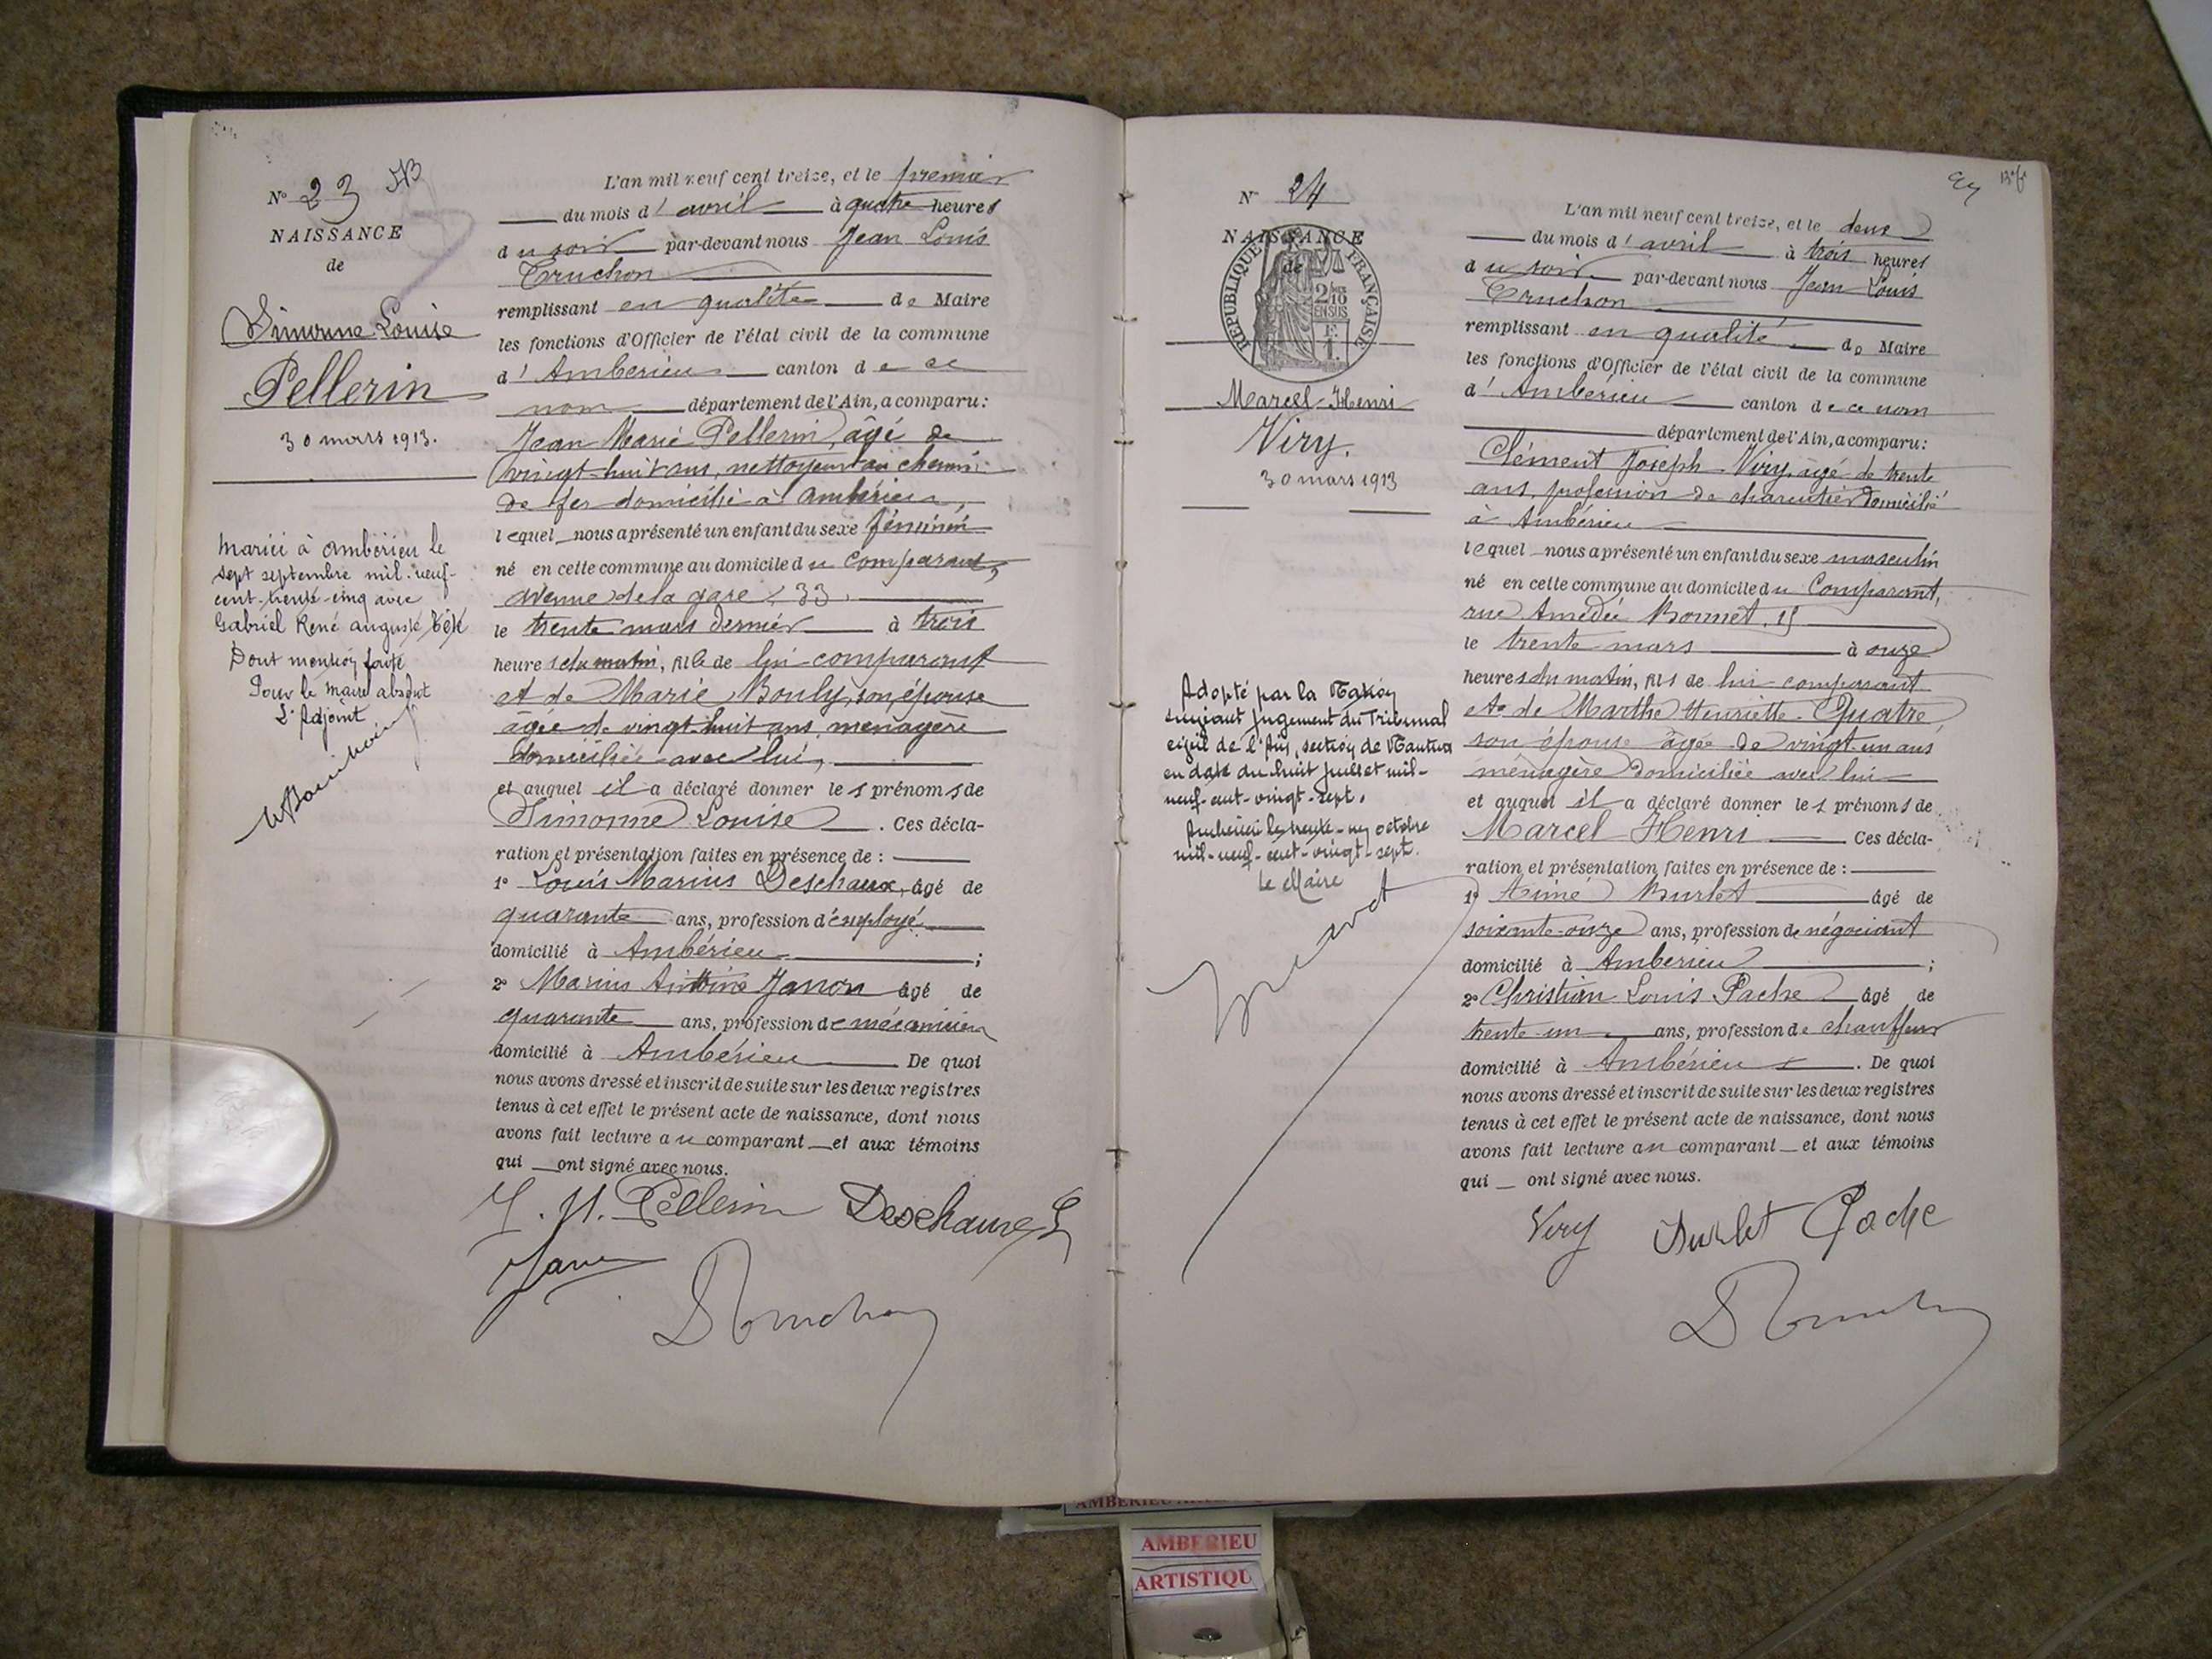 N° 23 NB
NAISSANCE
de
Simonne Louise
Pellerin
30 mars 1913.
Mariée à Ambérieu le
sept septembre mil-neuf-
cent-trente-cinq avec
Gabriel René Auguste
Dont mention faite
Pour le Maire absent
L'Adjoint
L'an mil neuf cent treize, et le premier
du mois d'avril à quatre heures
du soir par-devant nous Jean Louis
Truchon
remplissant en qualité de Maire
les fonctions d'Officier de l'état civil de la commune
d'Ambérieu canton de ce
nom département de l'Ain, a comparu:
Jean Marie Pellerin, âgé de
vingt-huit ans, nettoyeur au chemin
de fer domicilié à Ambérieu,
lequel nous a présenté un enfant du sexe féminin
né en cette commune au domicile du comparant,
avenue de la gare, 33.
le trente mars dernier à trois
heures du matin, fille de lui comparant
et de Marie Bouly, son épouse
âgée de vingt-huit ans, ménagère
domiciliée avec lui,
et auquel il a déclaré donner les prénoms de
Simonne Louise. Ces décla-
ration et présentation faites en présence de :
1° Louis Marius Deschaux, âgé de
quarante ans, profession d'employé
domicilié à Ambérieu ;
2° Marius Antoine Janon âgé de
quarante ans, profession de mécanicien
domicilié à Ambérieu De quoi
nous avons dressé et inscrit de suite sur les deux registres
tenus à cet effet le présent acte de naissance, dont nous
avons fait lecture au comparant et aux témoins
qui ont signé avec nous.
J. M. Pellerin Deschaux L
Janon
Truchon
N° 24
NAISSANCE
de
RÉPUBLIQUE FRANÇAISE
2/10
EN SUS
F.
1.
Marcel-Henri
Viry.
30 mars 1913
Adopté par la Nation
suivant jugement du Tribunal
civil de l'Ain, section de Nantua
en date du huit juillet mil-
neuf-cent-vingt-sept.
Ambérieu le trente-un octobre
mil-neuf-cent-vingt-sept.
Le Maire
L'an mil neuf cent treize, et le deux
du mois d'avril à trois heures
du soir par-devant nous Jean Louis
Truchon
remplissant en qualité de Maire
les fonctions d'Officier de l'état civil de la commune
d'Ambérieu canton de ce nom
département de l'Ain, a comparu:
Clément Joseph Viry, âgé de trente
ans, profession de charcutier domicilié
à Ambérieu
lequel nous a présenté un enfant du sexe masculin
né en cette commune au domicile du comparant,
rue Amédée Bonnet, 15
le trente mars à onze
heures du matin, fils de lui comparant
et de Marthe Henriette Quatre
son épouse âgée de vingt-un ans
ménagère domiciliée avec lui
et auquel il a déclaré donner les prénoms de
Marcel Henri Ces décla-
ration et présentation faites en présence de :
1° Aimé Burlet âgé de
soixante-onze ans, profession de négociant
domicilié à Ambérieu ;
2° Christian Louis Pache âgé de
trente-un ans, profession de chauffeur
domicilié à Ambérieu. De quoi
nous avons dressé et inscrit de suite sur les deux registres
tenus à cet effet le présent acte de naissance, dont nous
avons fait lecture au comparant et aux témoins
qui ont signé avec nous.
Viry Burlet Pache
Truchon
AMBERIEU
ARTISTIQU